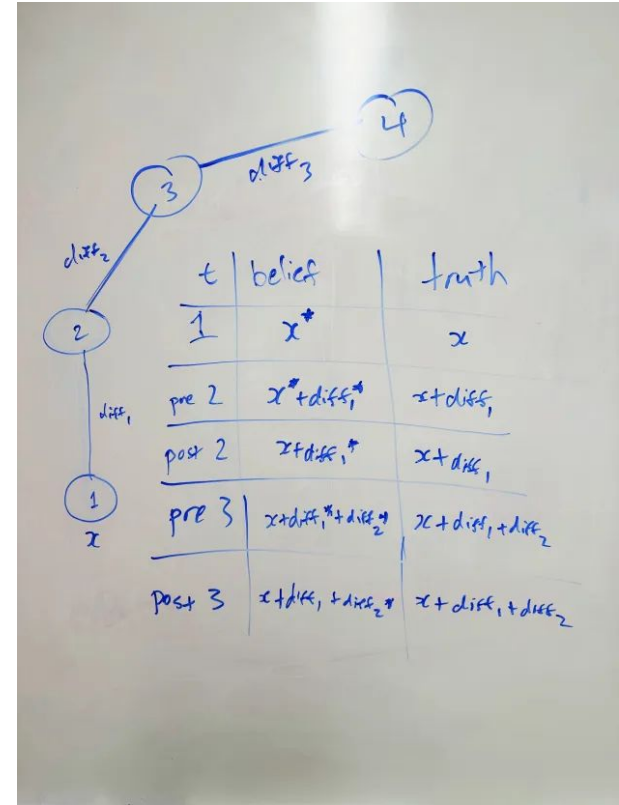 4
diff₃
3
diff₂
t belief truth
1 x* x
2
pre 2 x*+diff₁* x+diff₁
diff₁
post 2 x+diff₁* x+diff₁
1
x
pre 3 x+diff₁*+diff₂* x+diff₁+diff₂
post 3 x+diff₁+diff₂* x+diff₁+diff₂